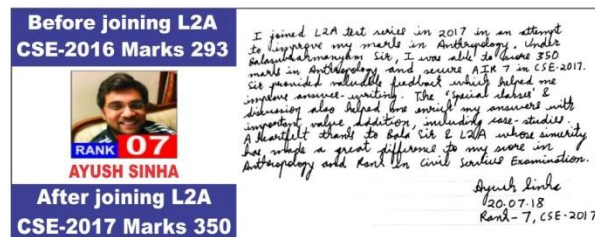 Before joining L2A
CSE-2016 Marks 293
RANK 07
AYUSH SINHA
After joining L2A
CSE-2017 Marks 350
I joined L2A test series in 2017 in an attempt
to improve my marks in Anthropology. Under
Balasubramanyam Sir, I was able to score 350
marks in Anthropology and secure AIR 7 in CSE-2017.
Sir provided valuable feedback which helped me
improve answer-writing. The 'special classes' &
discussion also helped me enrich my answers with
important value addition, including case-studies.
A heartfelt thanks to Bala Sir & L2A whose sincerity
has made a great difference to my score in
Anthropology and Rank in Civil Services Examination.
Ayush Sinha
20.07.18
Rank-7, CSE-2017